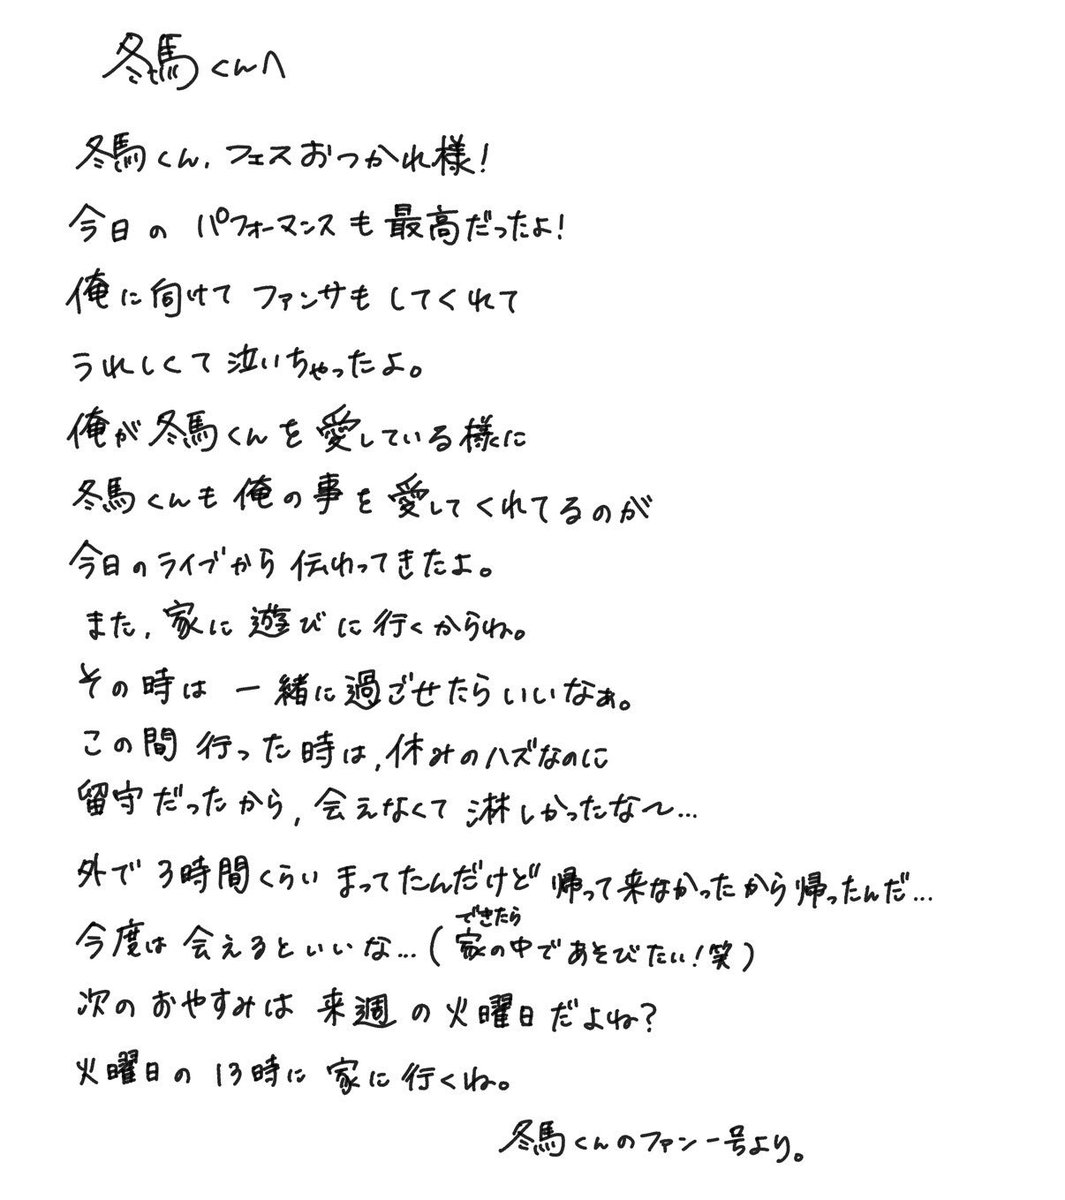 冬馬くんへ
冬馬くん、フェスおつかれ様!
今日の パフォーマンスも 最高だったよ!
俺に向けて ファンサも してくれて
うれしくて 泣いちゃったよ。
俺が 冬馬くんを 愛している様に
冬馬くんも 俺の事を 愛してくれてるのが
今日のライブから 伝わってきたよ。
また、家に 遊びに 行くからね。
その時は 一緒に過ごせたらいいなぁ。
この間 行った時は、休みのハズなのに
留守だったから、会えなくて 淋しかったな〜…
外で 3時間くらい まってたんだけど 帰って来なかったから帰ったんだ…
できたら
今度は 会えるといいな…(家の中であそびたい!笑)
次の おやすみは 来週の火曜日だよね?
火曜日の 13時に 家に 行くね。
冬馬くんのファン一号より。